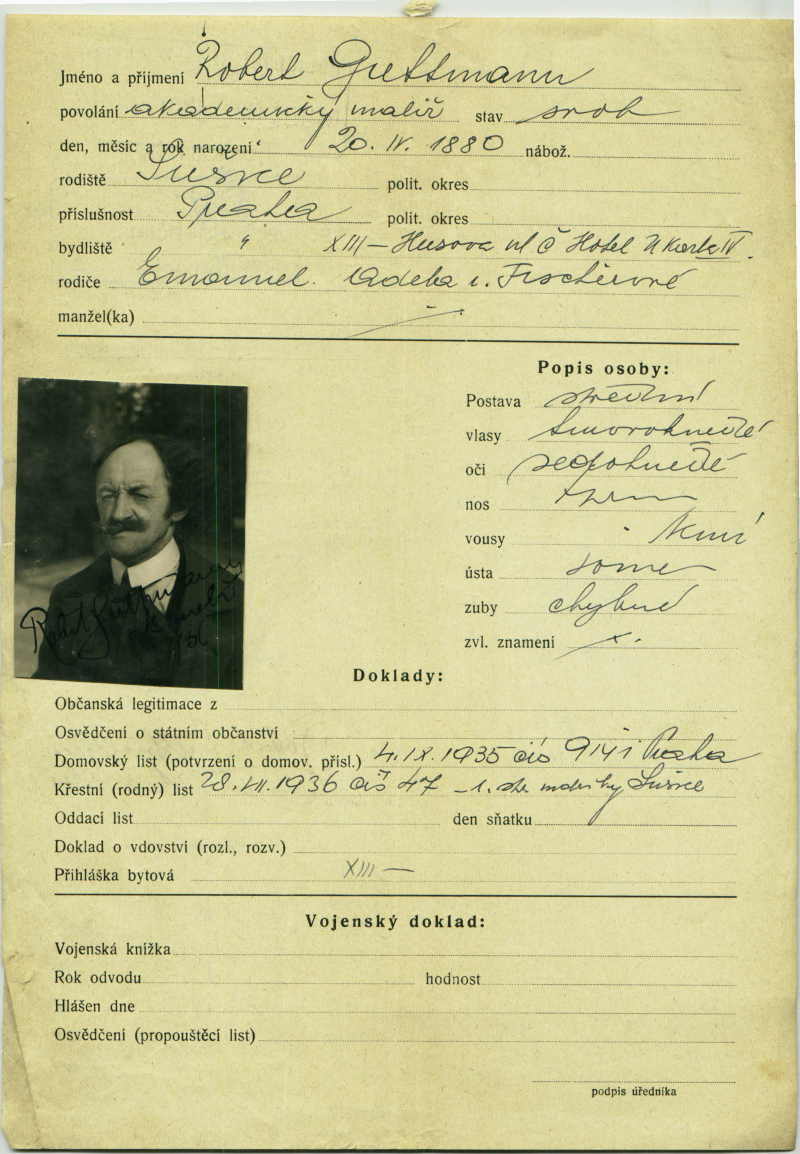 Jméno a příjmení Robert Guttmann
povolání akademický malíř stav svob
den, měsíc a rok narození 20. IV. 1880 nábož.
rodiště Sušice polit. okres
příslušnost Praha polit. okres
bydliště " XIII – Husova ul č Hotel U Karla IV.
rodiče Emanuel. Adela r. Fischerové
manžel(ka)
Popis osoby:
Postava střední
vlasy tmavohnědé
oči šedohnědé
nos
vousy knír
ústa
zuby chybné
zvl. znamení x.
Robert Guttmann
Doklady:
Občanská legitimace z
Osvědčení o státním občanství
Domovský list (potvrzení o domov. přísl.) 4. IX. 1935 čís Praha
Křestní (rodný) list 28. VII. 1936 čís 47 – Sušice
Oddací list den sňatku
Doklad o vdovství (rozl., rozv.)
Přihláška bytová XIII –
Vojenský doklad:
Vojenská knížka
Rok odvodu hodnost
Hlášen dne
Osvědčení (propouštěcí list)
podpis úředníka